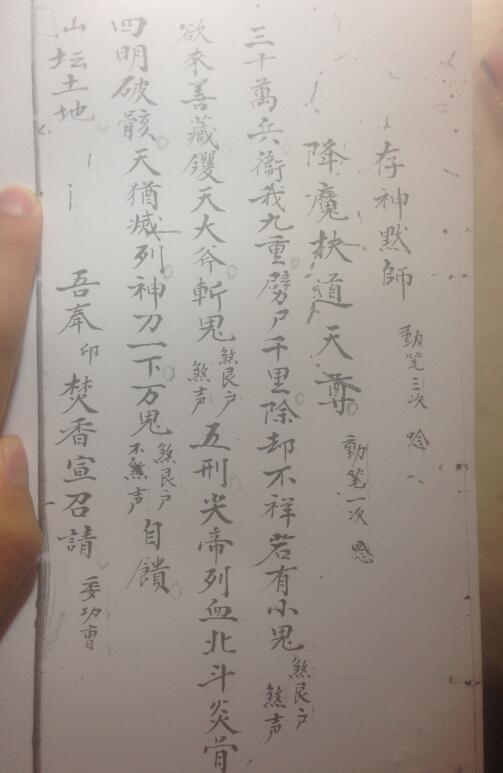 存神黙師 動笔三次 唸
降魔扶道天尊 動笔一次 唸
三十萬兵衛我九重劈尸千里除却不祥若有小鬼 煞艮户 煞声
欲來善藏鑊天大斧斬鬼 煞艮户 煞声 五刑尖帝列血北斗炎骨
四明破骸天猶滅列神刀一下万鬼 煞艮户 不煞声 自饋
山坛土地 吾奉 印 焚香宣召請 委功曹